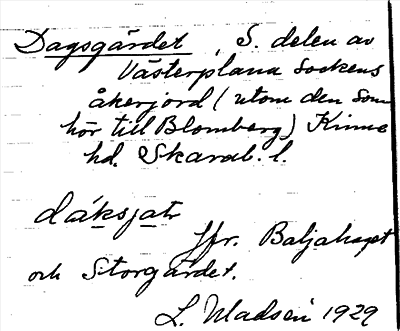 Dagsgärdet, S. delen av
Västerplana sockens
åkerjord (utom den som
hör till Blomberg) Kinne
hd. Skarab. l.
dáksjatr
Jfr. Baljahaget
och Storgärdet.
L. Madsén 1929